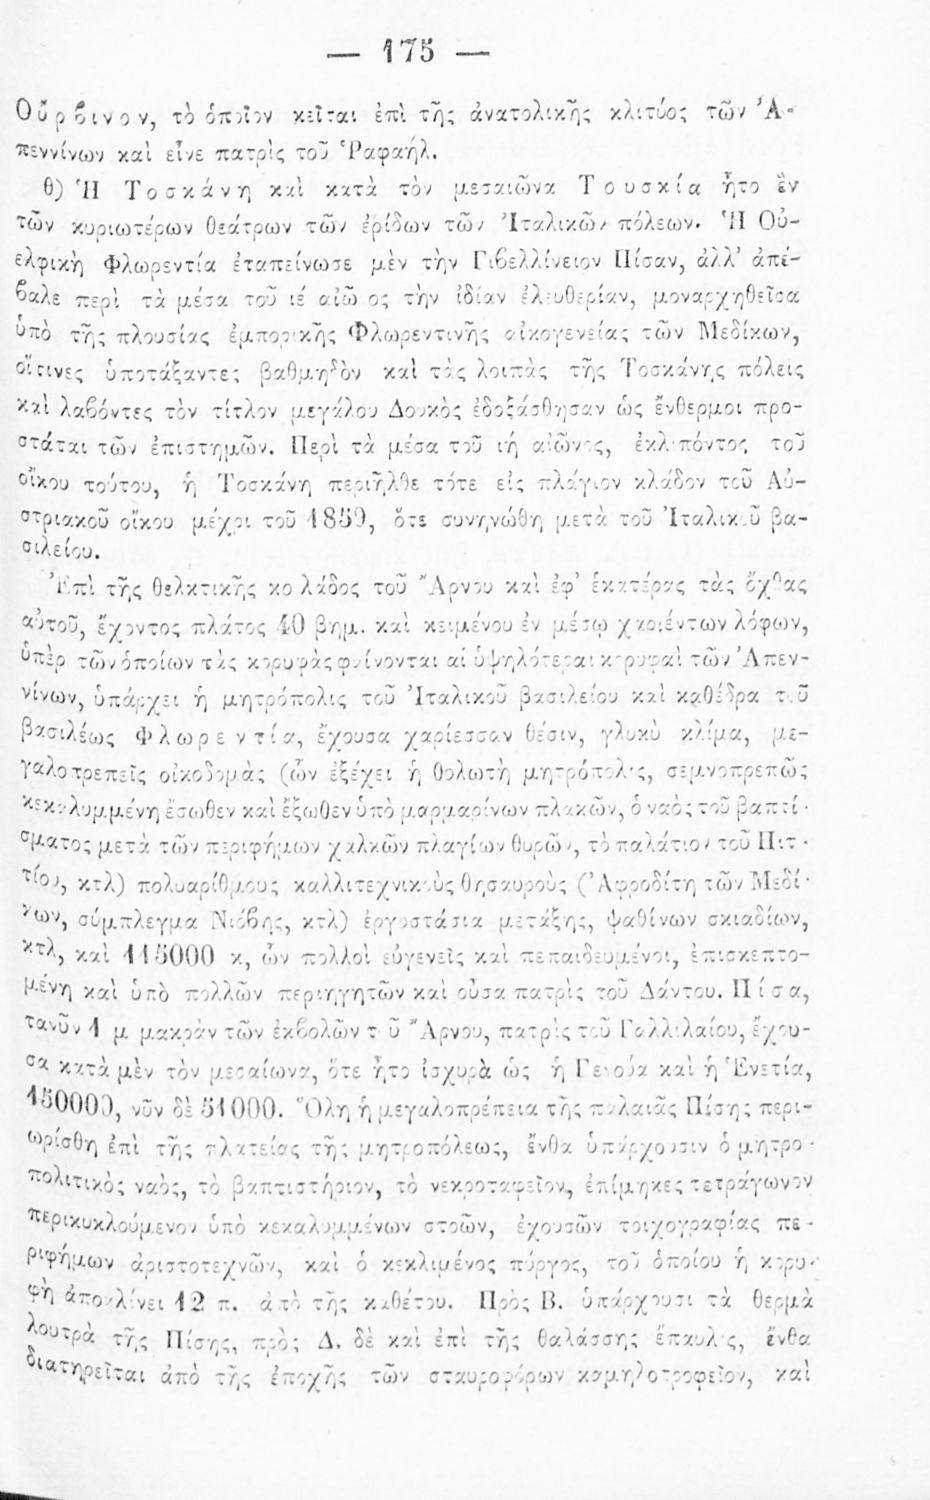 — 175 —
Οὔρβινον, τὸ ὁποῖον κεῖται ἐπὶ τῆς ἀνατολικῆς κλιτύος τῶν Ἀ-
πεννίνων καὶ εἶνε πατρὶς τοῦ Ῥαφαήλ.
θ) Ἡ Τοσκάνη καὶ κατὰ τὸν μεσαιῶνα Τουσκία ἦτο ἓν
τῶν κυριωτέρων θεάτρων τῶν ἐρίδων τῶν Ἰταλικῶν πόλεων. Ἡ Οὐ-
ελφικὴ Φλωρεντία ἐταπείνωσε μὲν τὴν Γιβελλίνειον Πίσαν, ἀλλ’ ἀπέ-
βαλε περὶ τὰ μέσα τοῦ ιέ αἰῶ ος τὴν ἰδίαν ἐλευθερίαν, μοναρχηθεῖσα
ὑπὸ τῆς πλουσίας ἐμπορικῆς Φλωρεντινῆς οἰκογενείας τῶν Μεδίκων,
οἵτινες ὑποτάξαντες βαθμηδὸν καὶ τὰς λοιπὰς τῆς Τοσκάνης πόλεις
καὶ λαβόντες τὸν τίτλον μεγάλου Δουκὸς ἐδοξάσθησαν ὡς ἔνθερμοι προ-
στάται τῶν ἐπιστημῶν. Περὶ τὰ μέσα τοῦ ιή αἰῶνος, ἐκλιπόντος τοῦ
οἴκου τούτου, ἡ Τοσκάνη περιῆλθε τότε εἰς πλάγιον κλάδον τοῦ Αὐ-
στριακοῦ οἴκου μέχρι τοῦ 1859, ὅτε συνηνώθη μετὰ τοῦ Ἰταλικοῦ βα-
σιλείου.
Ἐπὶ τῆς θελκτικῆς κοιλάδος τοῦ Ἄρνου καὶ ἐφ’ ἑκατέρας τὰς ὄχθας
αὐτοῦ, ἔχοντος πλάτος 40 βημ. καὶ κειμένου ἐν μέσῳ χαριέντων λόφων,
ὑπὲρ τῶν ὁποίων τὰς κορυφὰς φαίνονται αἱ ὑψηλότεραι κορυφαὶ τῶν Ἀπεν-
νίνων, ὑπάρχει ἡ μητρόπολις τοῦ Ἰταλικοῦ βασιλείου καὶ καθέδρα τοῦ
βασιλέως Φλωρεντία, ἔχουσα χαρίεσσαν θέσιν, γλυκὺ κλίμα, με-
γαλοπρεπεῖς οἰκοδομὰς (ὧν ἐξέχει ἡ θολωτὴ μητρόπολις, σεμνοπρεπῶς
κεκαλυμμένη ἔσωθεν καὶ ἔξωθεν ὑπὸ μαρμαρίνων πλακῶν, ὁ ναὸς τοῦ βαπτί-
σματος μετὰ τῶν περιφήμων χαλκῶν πλαγίων θυρῶν, τὸ παλάτιον τοῦ Πιτ-
τίου, κτλ) πολυαρίθμους καλλιτεχνικοὺς θησαυροὺς (Ἀφροδίτη τῶν Μεδί-
κων, σύμπλεγμα Νιόβης, κτλ) ἐργοστάσια μετάξης, ψαθίνων σκιαδίων,
κτλ, καὶ 115000 κ, ὧν πολλοὶ εὐγενεῖς καὶ πεπαιδευμένοι, ἐπισκεπτο-
μένη καὶ ὑπὸ πολλῶν περιηγητῶν καὶ οὖσα πατρὶς τοῦ Δάντου. Πίσα,
τανῦν 1 μ μακρὰν τῶν ἐκβολῶν τοῦ Ἄρνου, πατρὶς τοῦ Γαλλιλαίου, ἔχου-
σα κατὰ μὲν τὸν μεσαίωνα, ὅτε ἦτο ἰσχυρὰ ὡς ἡ Γενούα καὶ ἡ Ἑνετία,
150000, νῦν δὲ 51000. Ὅλη ἡ μεγαλοπρέπεια τῆς παλαιᾶς Πίσης περι-
ωρίσθη ἐπὶ τῆς πλατείας τῆς μητροπόλεως, ἔνθα ὑπάρχουσιν ὁ μητρο-
πολιτικὸς ναὸς, τὸ βαπτιστήριον, τὸ νεκροταφεῖον, ἐπίμηκες τετράγωνον
περικυκλούμενον ὑπὸ κεκαλυμμένων στοῶν, ἐχουσῶν τοιχογραφίας πε-
ριφήμων ἀριστοτεχνῶν, καὶ ὁ κεκλιμένος πύργος, τοῦ ὁποίου ἡ κορυ-
φὴ ἀποκλίνει 12 π. ἀπὸ τῆς καθέτου. Πρὸς Β. ὑπάρχουσι τὰ θερμὰ
λουτρὰ τῆς Πίσης, πρὸς Δ. δὲ καὶ ἐπὶ τῆς θαλάσσης ἔπαυλις, ἔνθα
διατηρεῖται ἀπὸ τῆς ἐποχῆς τῶν σταυροφόρων καμηλοτροφεῖον, καὶ